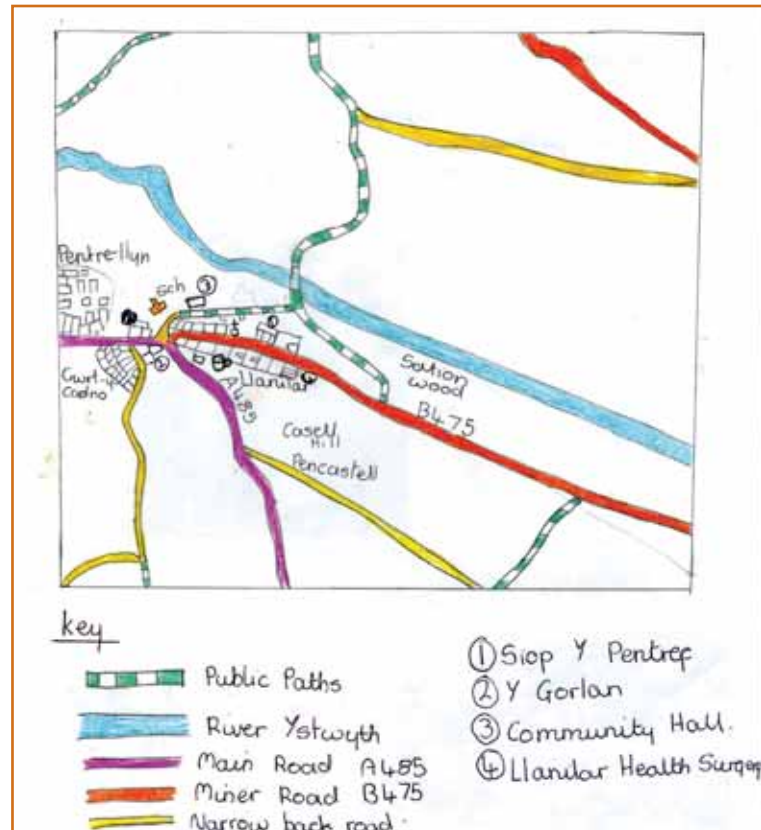 Pentre-llyn
Sch
③
Gwel-y
Coedno
A485
Llanilar
Sation
wood
B475
Casell
Hill
Pencastell
key
Public Paths
River Ystwyth
Main Road A485
Miner Road B475
Narrow back road
① Siop Y Pentref
② Y Gorlan
③ Community Hall.
④ Llanilar Health Surgery